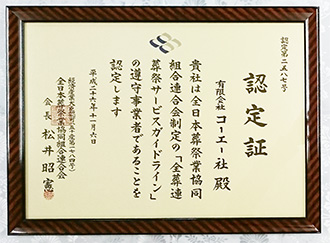 認定第二五八七号
認定証
有限会社 コーエー社 殿
貴社は全日本葬祭業協同
組合連合会制定の「全葬連
葬祭サービスガイドライン」
の遵守事業者であることを
認定します
平成二十六年十一月六日
全日本葬祭業協同組合連合会
会長 松井昭憲